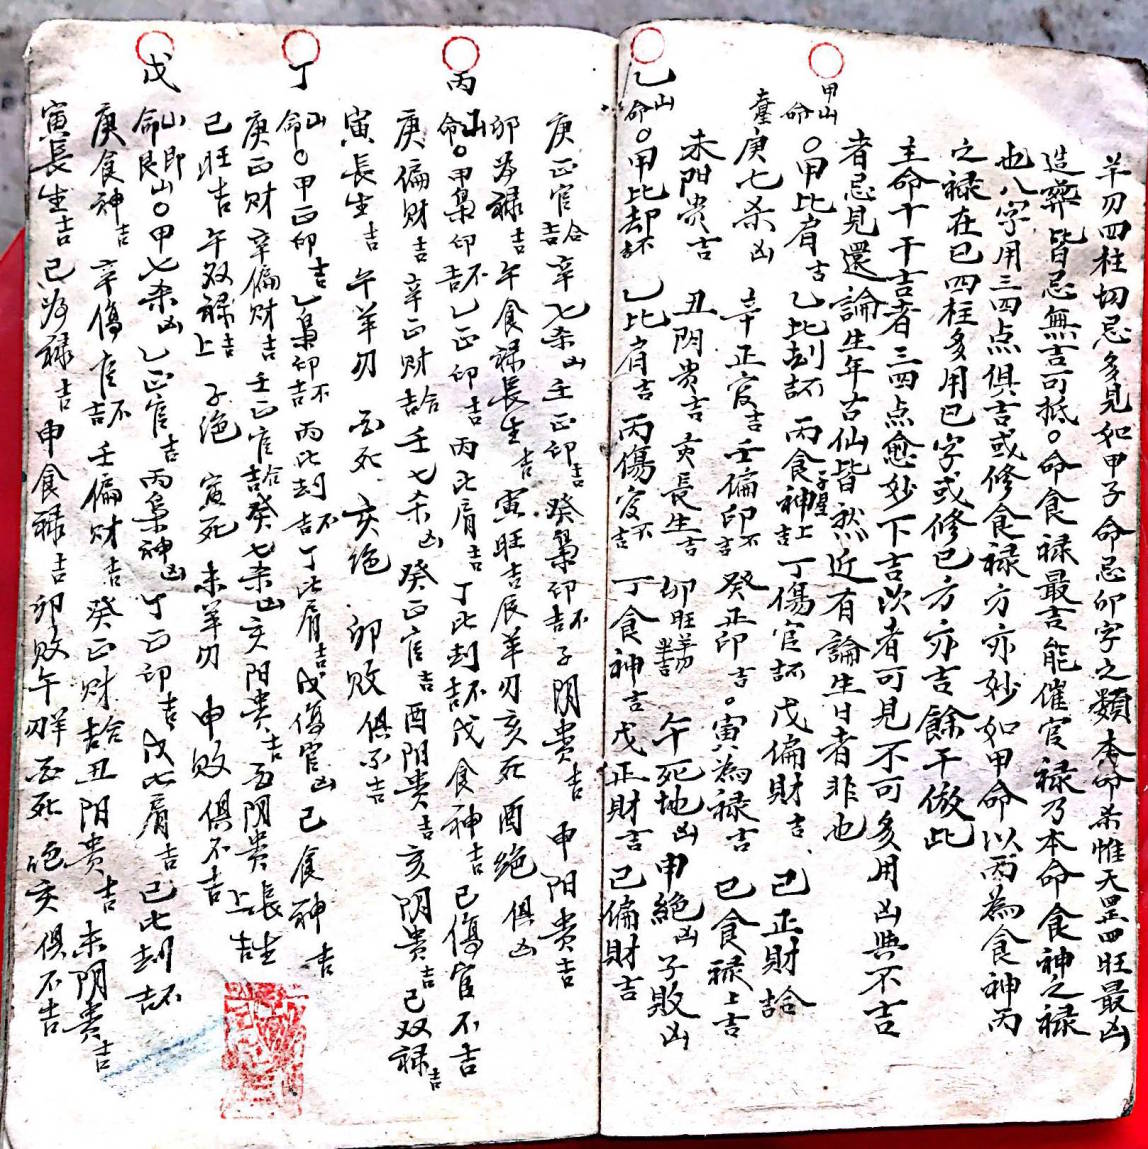 羊刃四柱切忌多見如甲子命忌卯字之類本命杀惟天罡四旺最凶
造葬皆忌無吉可抵。命食禄最吉能催官禄乃本命食神之禄
也八字用三四点俱吉或修食禄方亦妙如甲命以丙為食神丙
之禄在巳四柱多用巳字或修巳方亦吉餘干倣此
主命十干吉者三四点愈妙下吉次者可見不可多用凶與不吉
者忌見還論生年古仙皆然近有論生日者非也
甲山命○甲比肩吉 乙比刦不吉 丙食神上吉 丁傷官不吉 戊偏財吉 己正財吉
庚七杀凶 辛正官吉 壬偏印不吉 癸正印吉。寅為禄吉 巳食禄上吉
未陽贵吉 丑阴贵吉 亥長生吉 卯旺羊刃半吉 午死地凶 申絕凶 子敗凶
乙山命○甲比刦不吉 乙比肩吉 丙傷官不吉 丁食神吉 戊正財吉 己偏財吉
庚正官合吉 辛七杀凶 壬正印吉 癸梟印不吉 子阴贵吉 申阳贵吉
卯為禄吉 午食禄長生吉 寅旺吉 辰羊刃 亥死 酉絕 俱凶
丙山命○甲梟印不吉 乙正印吉 丙比肩吉 丁比刦不吉 戊食神吉 己傷官不吉
庚偏財吉 辛正财合吉 壬七杀凶 癸正官吉 酉阴贵吉 亥阴贵吉 巳双禄吉
寅長生吉 午羊刃 酉死 亥绝 卯败 俱不吉
丁山命○甲正印吉 乙梟印不吉 丙比刦不吉 丁比肩吉 戊傷官凶 己食神吉
庚正财 辛偏财吉 壬正官合吉 癸七杀凶 亥阳贵吉 酉阴贵長生上吉
巳旺吉 午双禄上吉 子绝 寅死 未羊刃 申败 俱不吉
戊山命即艮山○甲七杀凶 乙正官吉 丙梟神凶 丁正印吉 戊比肩吉 己比刦不吉
庚食神吉 辛傷官不吉 壬偏财吉 癸正财合吉 丑阳贵吉 未阴贵吉
寅長生吉 巳為禄吉 申食禄吉 卯败 午羊刃 酉死 绝亥 俱不吉